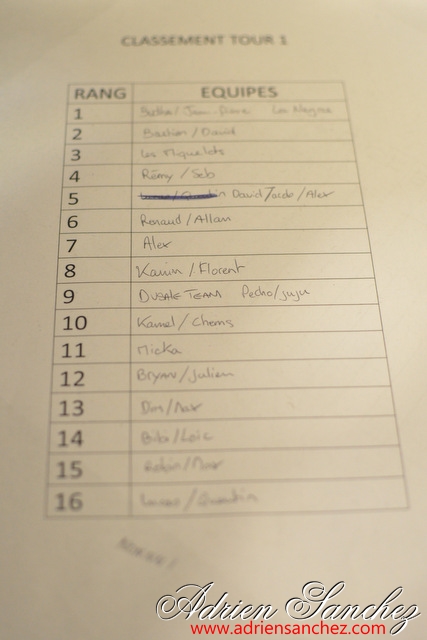 CLASSEMENT TOUR 1
RANG EQUIPES
1 Jean Pierre Los Negros
2 Bastien/David
3 Los Miquelets
4 Rémy/Seb
5 David/Alex
6 Renaud/Allan
7 Alex
8 Karim/Florent
9 DUBALE TEAM Pedro/juju
10 Kamel/Chems
11 Micka
12 BRYAN/Julien
13 Dim/Max
14 Bibi/Loic
15 Robin/Max
16 Lucas/Quentin
Adrien Sanchez
www.adriensanchez.com